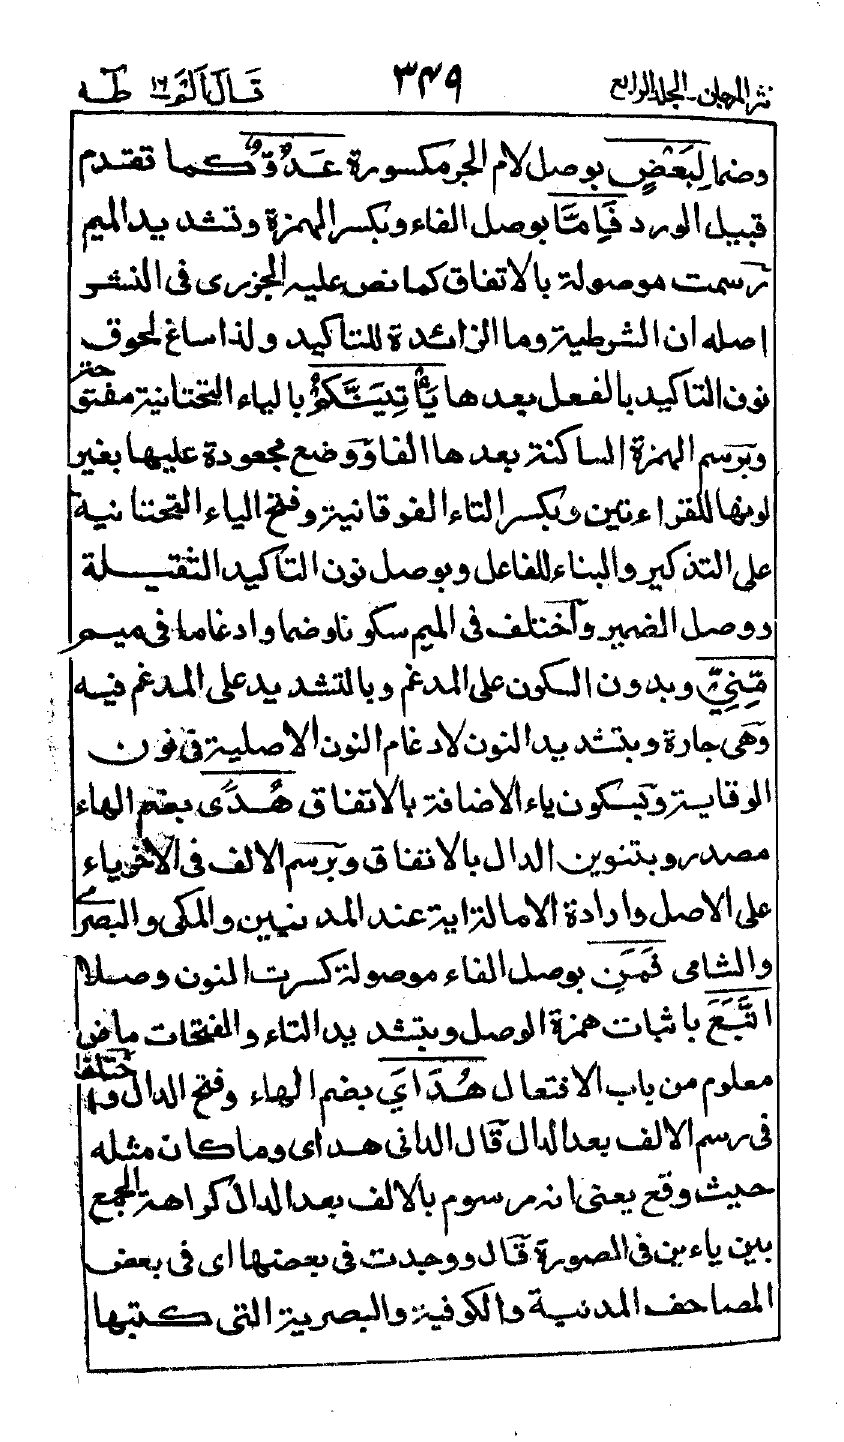 نثر المرجان - الجلد الرابع ٣٤٩ قَالَ اَلَمْ ١٦ طٰهٰ
وضما لِبَعْضٍ بوصل لام الجر مكسورة عَدُوٌّ كما تقدم
قبيل الورد فَاِمَّا بوصل الفاء وبكسر الهمزة وتشديد الميم
رسمت موصولة بالاتفاق كما نص عليه الجزرى فى النشر
اصله ان الشرطية وما الزائدة للتاكيد ولذا ساغ لحوق
نون التاكيد بالفعل بعدها يَاْتِيَنَّكُمْ بالياء التحتانية مفتوحة
وبرسم الهمزة الساكنة بعدها الفا ووضع مجعودة عليها بغير
لونها للقراءتين وبكسر التاء الفوقانية وفتح الياء التحتانية
على التذكير والبناء للفاعل وبوصل نون التاكيد الثقيلة
ووصل الضمير واختلف فى الميم سكونا وضما وادغاما فى ميم
مِّنِّيْ وبدون السكون على المدغم وبالتشديد على المدغم فيه
وهى جارة وبتشديد النون لادغام النون الاصلية فى نون
الوقاية وبسكون ياء الاضافة بالاتفاق هُدًى بضم الهاء
مصدر وبتنوين الدال بالاتفاق وبرسم الالف فى الاخر ياء
على الاصل وارادة الامالة اية عند المدنيين والمكى والبصرى
والشامى فَمَنِ بوصل الفاء موصولة كسرت النون وصلا
اتَّبَعَ باثبات همزة الوصل وبتشديد التاء والفتحات ماض
معلوم من باب الافتعال هُدَايَ بضم الهاء وفتح الدال واختلف
فى رسم الالف بعد الدال قال الدانى هداى وما كان مثله
حيث وقع يعنى انه مرسوم بالالف بعد الدال كراهة الجمع
بين ياءين فى الصورة قال ووجدت فى بعضها اى فى بعض
المصاحف المدنية والكوفية والبصرية التى كتبها